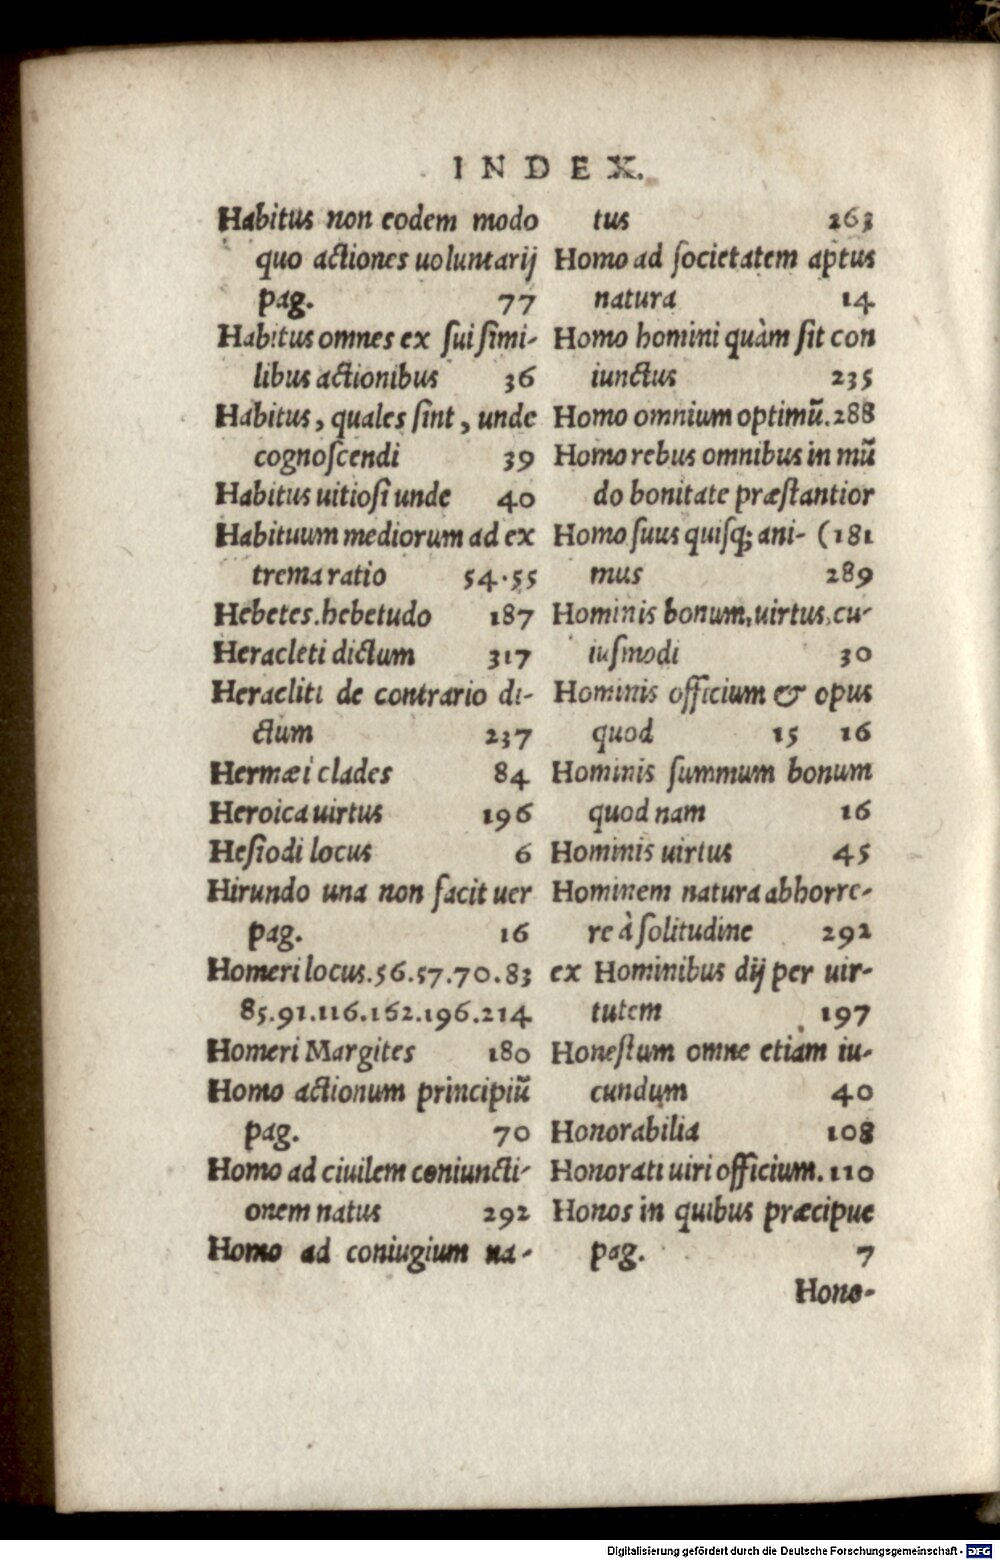 INDEX.
Habitus non eodem modo
quo actiones uoluntarij
pag. 77
Habitus omnes ex sui simi-
libus actionibus 36
Habitus, quales sint, unde
cognoscendi 39
Habitus uitiosi unde 40
Habituum mediorum ad ex
trema ratio 54.55
Hebetes.hebetudo 187
Heracleti dictum 317
Heracliti de contrario di-
ctum 237
Hermæi clades 84
Heroica uirtus 196
Hesiodi locus 6
Hirundo una non facit uer
pag. 16
Homeri locus.56.57.70.83
85.91.116.162.196.214
Homeri Margites 180
Homo actionum principiũ
pag. 70
Homo ad ciuilem coniuncti-
onem natus 292
Homo ad coniugium na-
tus 263
Homo ad societatem aptus
natura 14
Homo homini quàm sit con
iunctus 235
Homo omnium optimũ.288
Homo rebus omnibus in mũ
do bonitate præstantior
Homo suus quisq; ani- (181
mus 289
Hominis bonum,uirtus,cu-
iusmodi 30
Hominis officium & opus
quod 15 16
Hominis summum bonum
quod nam 16
Hominis uirtus 45
Hominem natura abhorre-
re à solitudine 292
ex Hominibus dij per uir-
tutem 197
Honestum omne etiam iu-
cundum 40
Honorabilia 108
Honorati uiri officium.110
Honos in quibus præcipue
pag. 7
Hono-
Digitalisierung gefördert durch die Deutsche Forschungsgemeinschaft - DFG